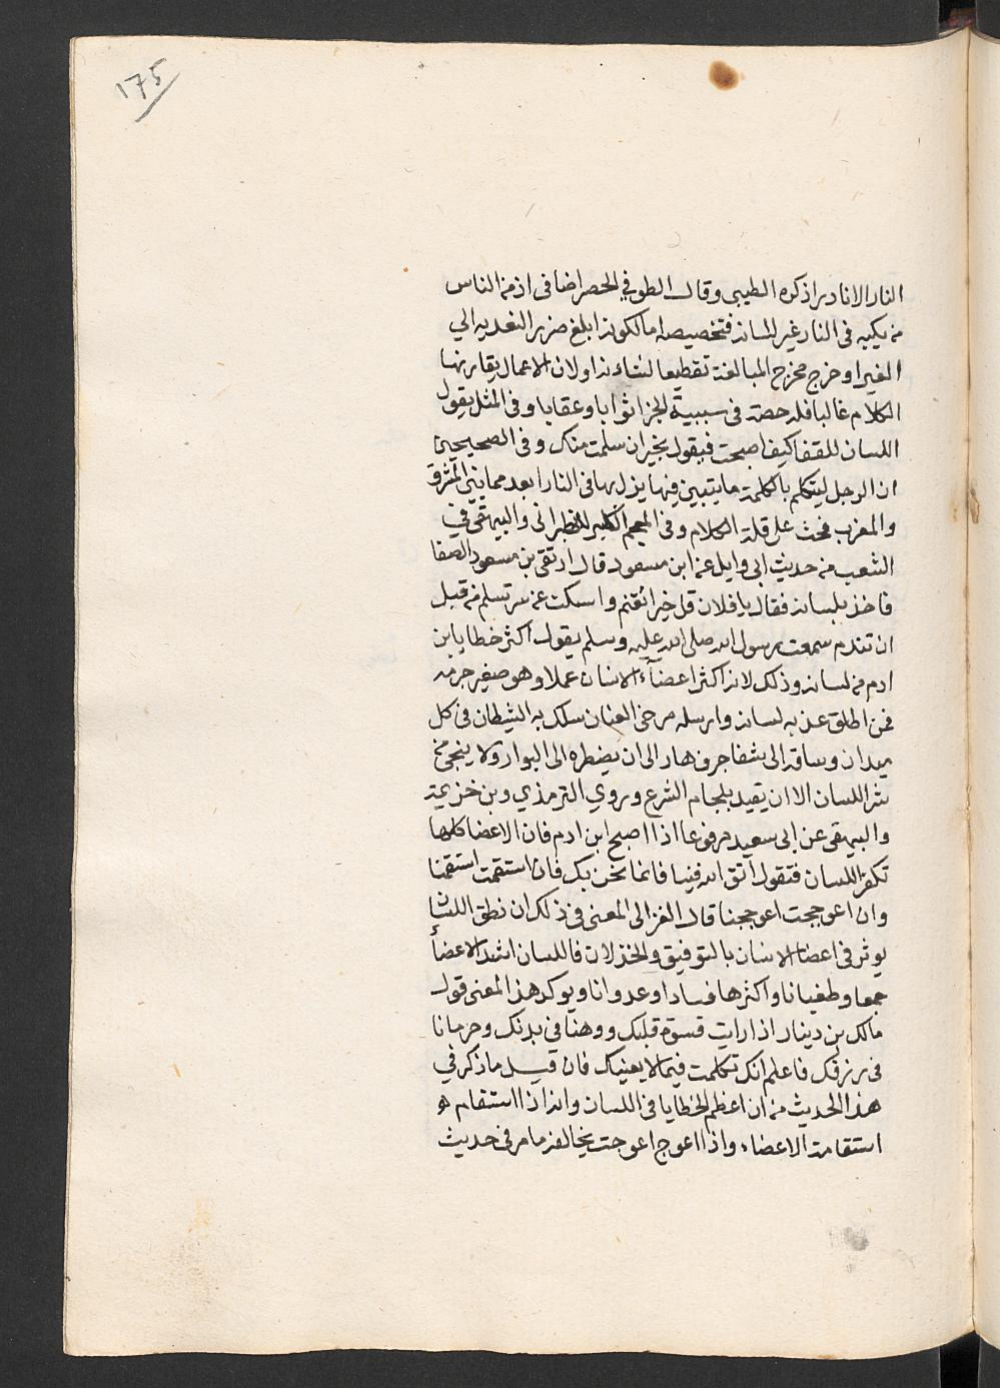 175
النار الا نادرا ذكره الطيبي وقال الطوفي الحصر اضافى اذ من الناس
من يكبه فى النار غير لسانه فتخصيصه اما لكونه ابلغ ضررا لتعديه الي
الغير او خرج مخرج المبالغة تقطيعا لشانه او لان الاعمال يقارنها
الكلام غالبا فله حصة فى سببية الجزا ثوابا وعقابا وفى المثل يقول
اللسان للقفا كيف اصبحت فيقول بخير ان سلمت منك وفى الصحيحين
ان الرجل ليتكلم بالكلمة ما يتبين فيها يزل بها فى النار ابعد مما بين المشرق
والمغرب فحث على قلة الكلام وفى المعجم الكبير للطبرانى والبيهقي في
الشعب من حديث ابى وايل عن ابن مسعود قال ارتقى بن مسعود الصفا
فاخذ بلسانه فقال يا فلان قل خيرا تغنم واسكت عن شر تسلم من قبل
ان تندم سمعت رسول الله صلى الله عليه وسلم يقول اكثر خطايا ابن
ادم من لسانه وذلك لانه اكثر اعضآء الانسان عملا وهو صغير جرمه
فمن اطلق عذبه لسانه وارسله مرخى العنان سلك به الشيطان فى كل
ميدان وساقه الى شفا جرف هار الى ان يضطره الى البوار ولا ينجى من
شر اللسان الا ان يقيد بلجام الشرع وروي الترمذي وبن خزيمة
والبيهقى عن ابى سعيد مرفوعا اذا اصبح ابن ادم فان الاعضا كلها
تكفر اللسان فتقول اتق الله فينا فانما نحن بك فان استقمت استقمنا
وان اعوججت اعوججنا قال الغزالى المعنى فى ذلك ان نطق اللسان
يوثر فى اعضا الانسان بالتوفيق والخذلان فاللسان اشد الاعضأ
جمعا وطغيانا واكثرها فسادا وعدوانا ويوكد هذا المعنى قول
مالك بن دينار اذا رايت قسوة قبلك ووهنا فى بدنك وحرمانا
فى رزقك فاعلم انك تكلمت فيما لا يعنيك فان قيل ما ذكر في
هذا الحديث من ان اعظم الخطايا فى اللسان وانه اذا استقام
استقامة الاعضاء واذا اعوج اعوجت يخالفه ما مر فى حديث